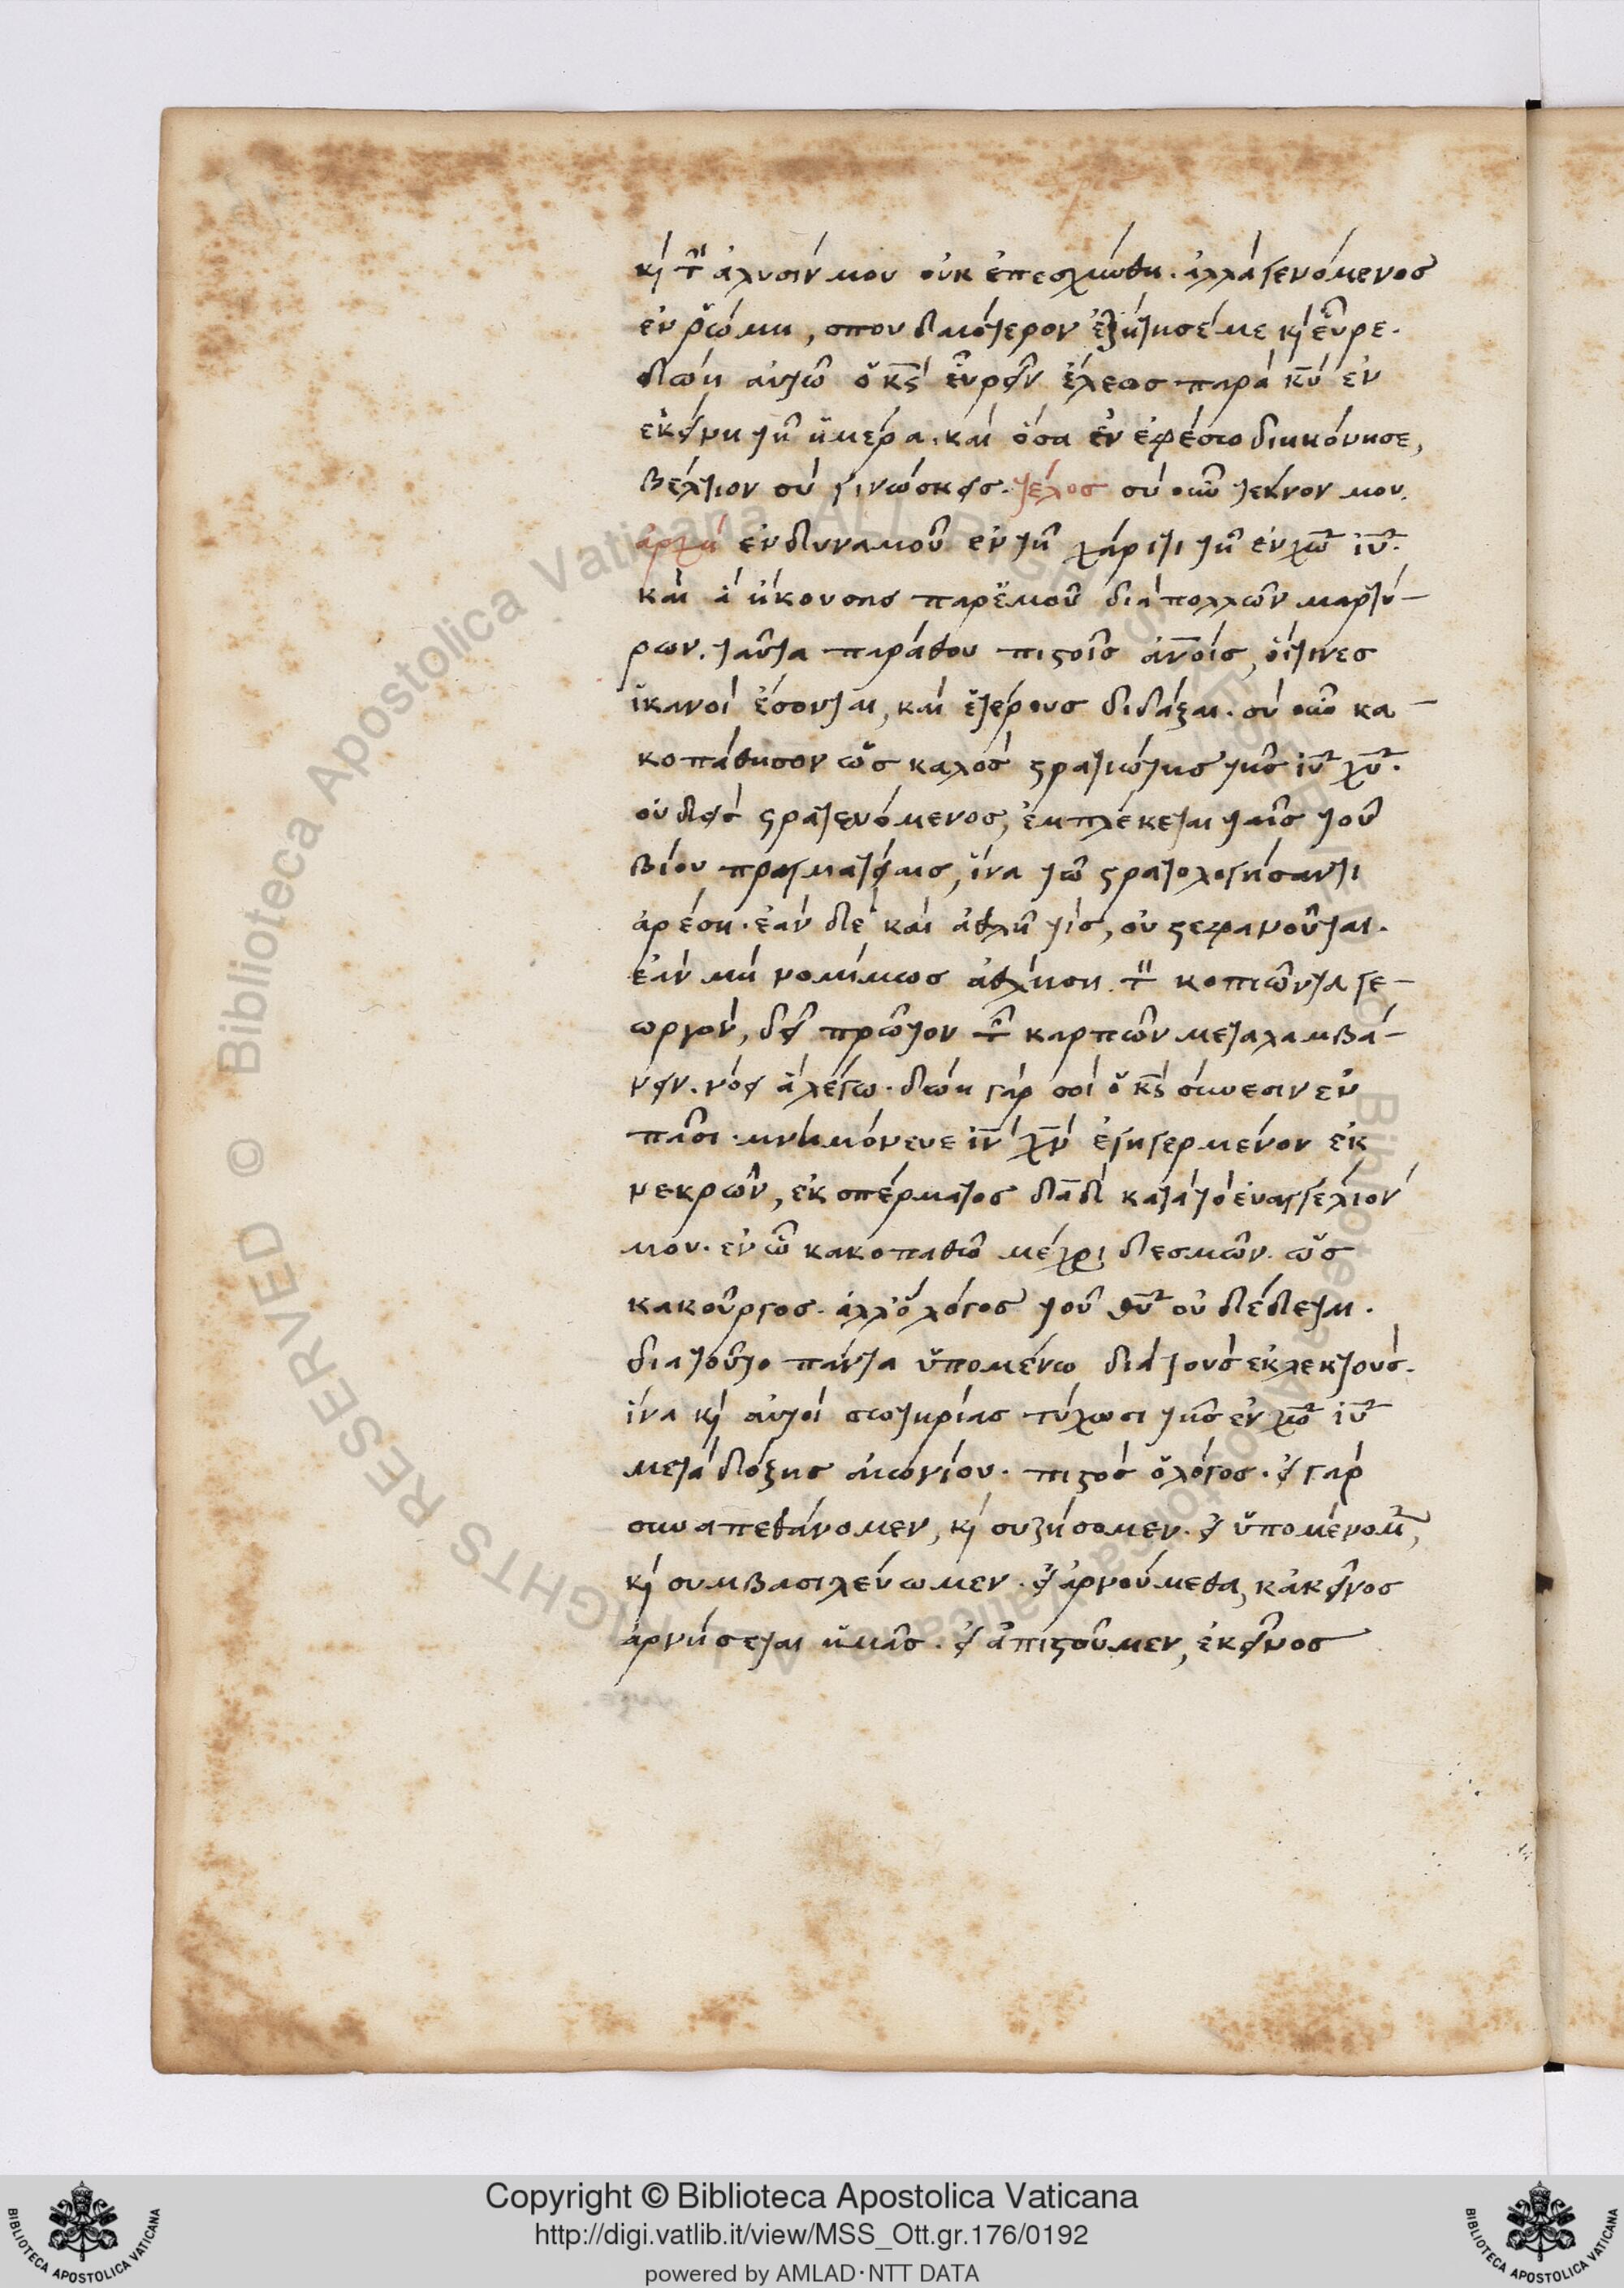 κὶ τ̅ ἅλυσίν μου οὐκ ἐπεσχύνθη. ἀλλὰ γενόμενος
ἐν ῥώμη, σπουδαιότερον ἐζήτησέ με κὶ εὗρε.
δώη αὐτῶ ὁ κ̅ς εὑρεῖν ἔλεος παρὰ κ̅υ ἐν
ἐκείνη τῆ ἡμέρα. καὶ ὅσα ἐν ἐφέσω διηκόνησε,
βέλτιον σὺ γινώσκεις. τέλος σὺ οὖν τέκνον μου.
ἀρχὴ ἐνδυναμοῦ ἐν τῆ χάριτι τῆ ἐν χ̅ω ι̅υ.
καὶ ἃ ἤκουσας παρ᾽ἐμοῦ διὰ πολλῶν μαρτύ-
ρων. ταῦτα παράθου πιστοῖς ἀ̅νοις, οἵτινες
ἱκανοὶ ἔσονται, καὶ ἑτέρους διδάξαι. σὺ οὖν κα-
κοπάθησον ὡς καλὸς στρατιώτης τῆς ι̅υ χ̅υ.
οὐδεὶς στρατευόμενος, ἐμπλέκεται ταῖς τοῦ
βίου πραγματείαις, ἵνα τῶ στρατολογήσαντι
ἀρέση. ἐὰν δὲ καὶ ἀθλῆ τὶς, οὐ στεφανοῦται.
ἐὰν μὴ νομίμως ἀθλήση. τ̅ κοπιῶντα γε-
ωργὸν, δεῖ πρῶτον τ̅ καρπῶν μεταλαμβά-
νειν. νόει ἃ λέγω. δώη γάρ σοι ὁ κ̅ς σύνεσιν ἐν
πᾶσι. μνημόνευε ι̅ν χ̅ν ἐγηγερμένον ἐκ
νεκρῶν, ἐκ σπέρματος δ̅α̅δ κατὰ τὸ εὐαγγέλιόν
μου. ἐν ὧ κακοπαθῶ μέχρι δεσμῶν. ὡς
κακοῦργος. ἀλλ᾽ὁ λόγος τοῦ θ̅υ οὐ δέδεται.
διατοῦτο πάντα ὑπομένω διὰ τοὺς ἐκλεκτούς.
ἵνα κὶ αὐτοὶ σωτηρίας τύχωσι τῆς ἐν χ̅ω ι̅υ
μετὰ δόξης αἰωνίου. πιστὸς ὁ λόγος. εἰ γὰρ
συναπεθάνομεν, κὶ συζήσομεν. εἰ ὑπομένομ̅,
κὶ συμβασιλεύωμεν. εἰ ἀρνούμεθα, κἀκεῖνος
ἀρνήσεται ἡμᾶς. εἰ ἀπιστοῦμεν, ἐκεῖνος
Copyright © Biblioteca Apostolica Vaticana
http://digi.vatlib.it/view/MSS_Ott.gr.176/0192
powered by AMLAD·NTT DATA